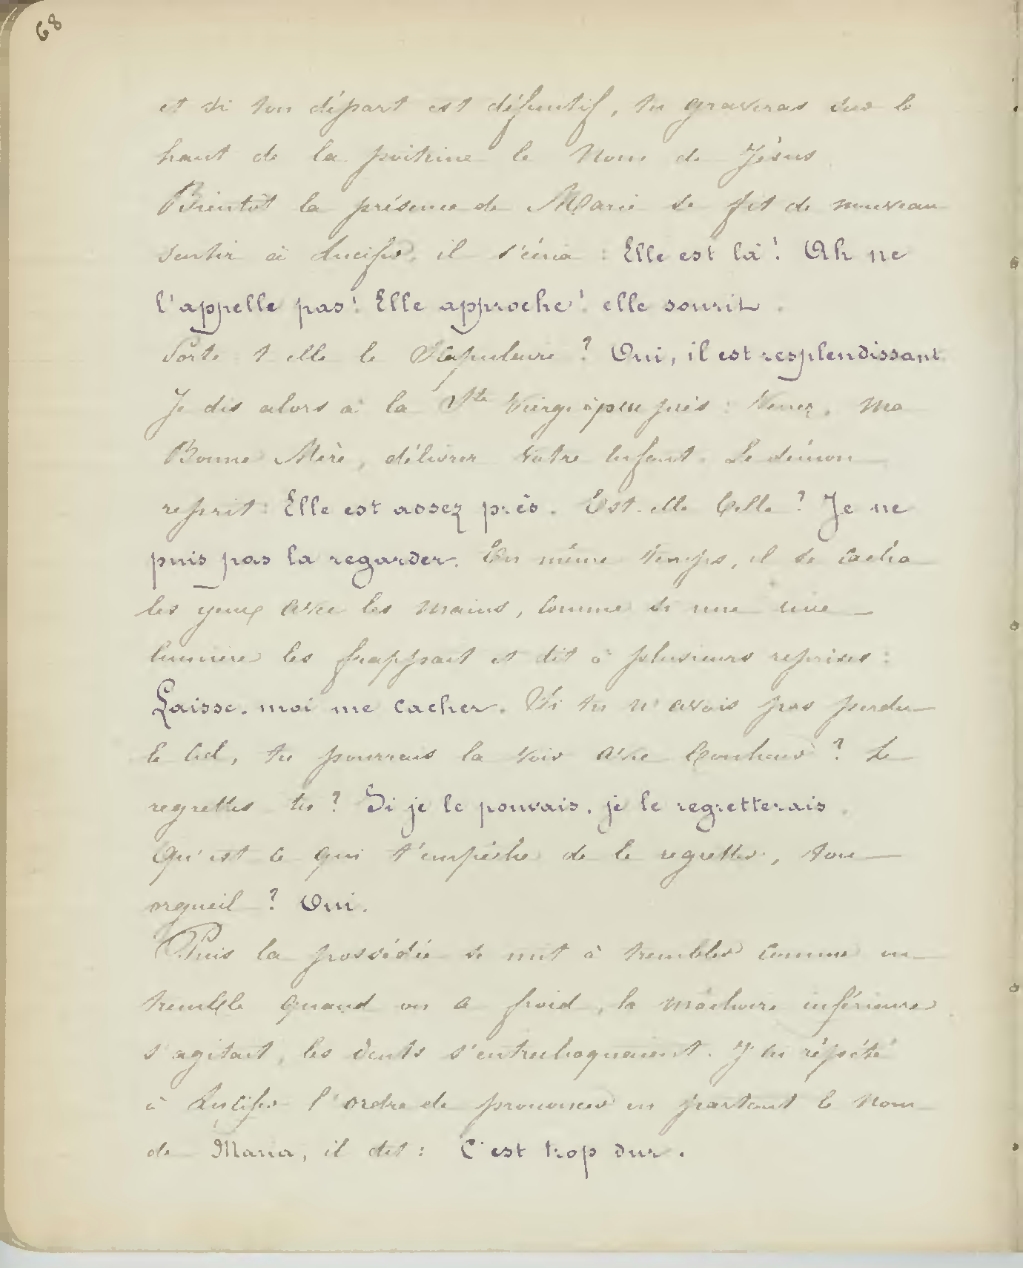 68
et si ton départ est définitif, tu graveras sur le
haut de la poitrine le Nom de Jésus.
Bientôt la présence de Marie se fit de nouveau
sentir à Lucifer, il s'écria : Elle est là ! Ah ne
l'appelle pas ! Elle approche ! elle sourit.
Porte t elle le Scapulaire ? Oui, il est resplendissant
Je dis alors à la Ste Vierge à peu près : Venez, ma
Bonne Mère, délivrer votre Enfant. Le démon
reprit : Elle est assez près. Est-elle belle ? Je ne
puis pas la regarder. En même temps, il se cacha
les yeux avec les mains, comme si une vive
lumière les frappait et dit à plusieurs reprises :
Laisse-moi me cacher. Si tu n'avais pas perdu
le Ciel, tu pourrais la voir avec bonheur ? Le
regrettes tu ? Si je le pouvais, je le regretterais.
Qu'est ce qui t'empêche de le regretter, ton
orgueil ? Oui.
Puis la possédée se mit à trembler comme on
tremble quand on a froid, la mâchoire inférieure
s'agitait, les dents s'entrechoquaient. J'ai répété
à Lucifer l'ordre de prononcer en partant le nom
de Maria, il dit : C'est trop dur.